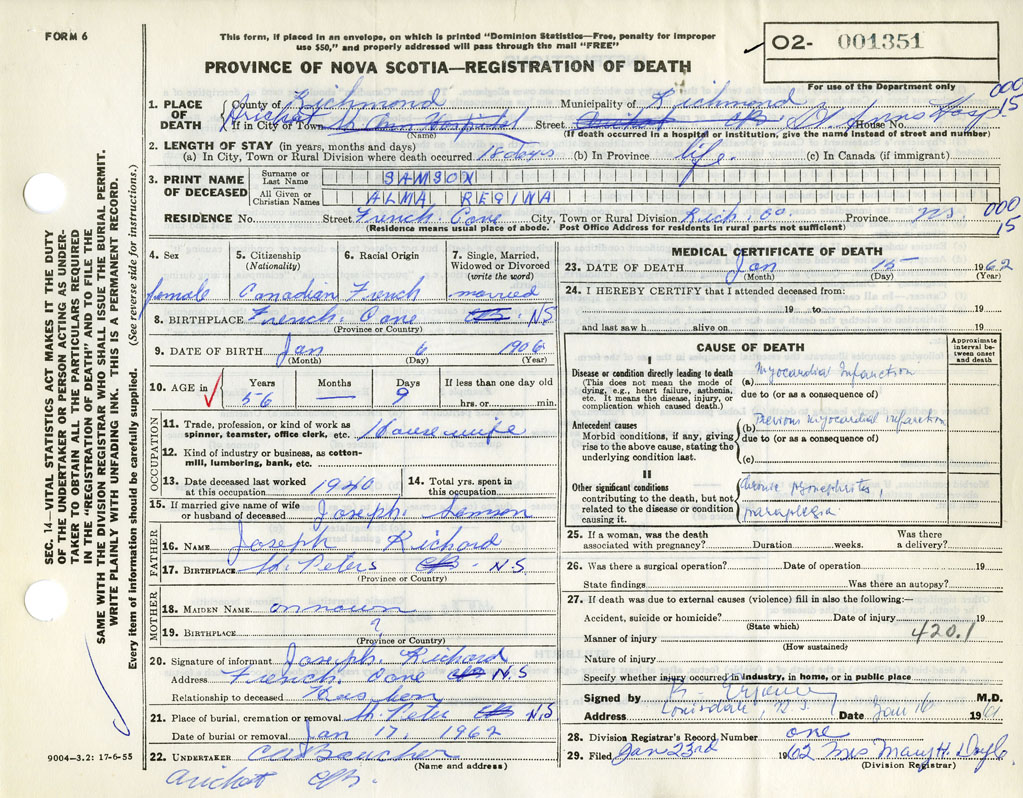 FORM 6
This form, if placed in an envelope, on which is printed "Dominion Statistics—Free, penalty for improper
use $50," and properly addressed will pass through the mail "FREE"
O2- 001351
For use of the Department only
PROVINCE OF NOVA SCOTIA—REGISTRATION OF DEATH
SEC. 14—VITAL STATISTICS ACT MAKES IT THE DUTY
OF THE UNDERTAKER OR PERSON ACTING AS UNDER-
TAKER TO OBTAIN ALL THE PARTICULARS REQUIRED
IN THE "REGISTRATION OF DEATH" AND TO FILE THE
SAME WITH THE DIVISION REGISTRAR WHO SHALL ISSUE THE BURIAL PERMIT.
WRITE PLAINLY WITH UNFADING INK. THIS IS A PERMANENT RECORD.
Every item of information should be carefully supplied. (See reverse side for instructions.)
1. PLACE OF DEATH
County of Richmond Municipality of Richmond 000
If in City or Town Arichat St Ann Hospital Street Arichat CB St. Anns Hosp House No. 15
(Name) (If death occurred in a hospital or institution, give name instead of street and number)
2. LENGTH OF STAY (in years, months and days)
(a) In City, Town or Rural Division where death occurred 18 days (b) In Province life. (c) In Canada (if immigrant)
3. PRINT NAME OF DECEASED
Surname or Last Name SAMSON
All Given or Christian Names ALMA REGINA
RESIDENCE No. Street French. Cove City, Town or Rural Division Rich. Co. Province N.S. 000
(Residence means usual place of abode. Post Office Address for residents in rural parts not sufficient) 15
4. Sex female
5. Citizenship (Nationality) Canadian
6. Racial Origin French
7. Single, Married, Widowed or Divorced (write the word) married
8. BIRTHPLACE French. Cove CB. N.S
(Province or Country)
9. DATE OF BIRTH Jan 6 1906
(Month) (Day) (Year)
10. AGE in Years Months Days If less than one day old
56 — 9 hrs. or min.
OCCUPATION
11. Trade, profession, or kind of work as
spinner, teamster, office clerk, etc. Housewife
12. Kind of industry or business, as cotton-
mill, lumbering, bank, etc.
13. Date deceased last worked
at this occupation 1940
14. Total yrs. spent in
this occupation
15. If married give name of wife
or husband of deceased Joseph. Samson
FATHER
16. NAME Joseph Richard
17. BIRTHPLACE St. Peters CB N.S.
(Province or Country)
MOTHER
18. MAIDEN NAME unnown
19. BIRTHPLACE ?
(Province or Country)
20. Signature of informant Joseph. Richard
Address French. Cove CB N.S
Relationship to deceased
21. Place of burial, cremation or removal St. Peter CB N.S
Date of burial or removal Jan 17, 1962
22. UNDERTAKER CA Boucher
(Name and address)
Arichat CB.
9004—3.2: 17-6-55
MEDICAL CERTIFICATE OF DEATH
23. DATE OF DEATH Jan 15 1962
(Month) (Day) (Year)
24. I HEREBY CERTIFY that I attended deceased from:
19 to 19
and last saw h alive on 19
CAUSE OF DEATH
Approximate interval between onset and death
I
Disease or condition directly leading to death
(This does not mean the mode of
dying, e.g., heart failure, asthenia,
etc. It means the disease, injury, or
complication which caused death.)
(a) Myocardial Infarction
due to (or as a consequence of)
Antecedent causes
Morbid conditions, if any, giving
rise to the above cause, stating the
underlying condition last.
(b) Previous myocardial infarction
due to (or as a consequence of)
(c)
II
Other significant conditions
contributing to the death, but not
related to the disease or condition
causing it.
chronic pyonephritis,
paraplegia
25. If a woman, was the death
associated with pregnancy? Duration weeks. Was there
a delivery?
26. Was there a surgical operation? Date of operation 19
State findings Was there an autopsy?
27. If death was due to external causes (violence) fill in also the following:—
Accident, suicide or homicide? Date of injury 19
(State which) 420.1
Manner of injury
(How sustained)
Nature of injury
Specify whether injury occurred in industry, in home, or in public place
Signed by M.D.
Address Louisdale, N.S. Date Jan 16 1961
28. Division Registrar's Record Number one
29. Filed Jan 23rd 1962 Mrs Mary H. Doyle
(Division Registrar)